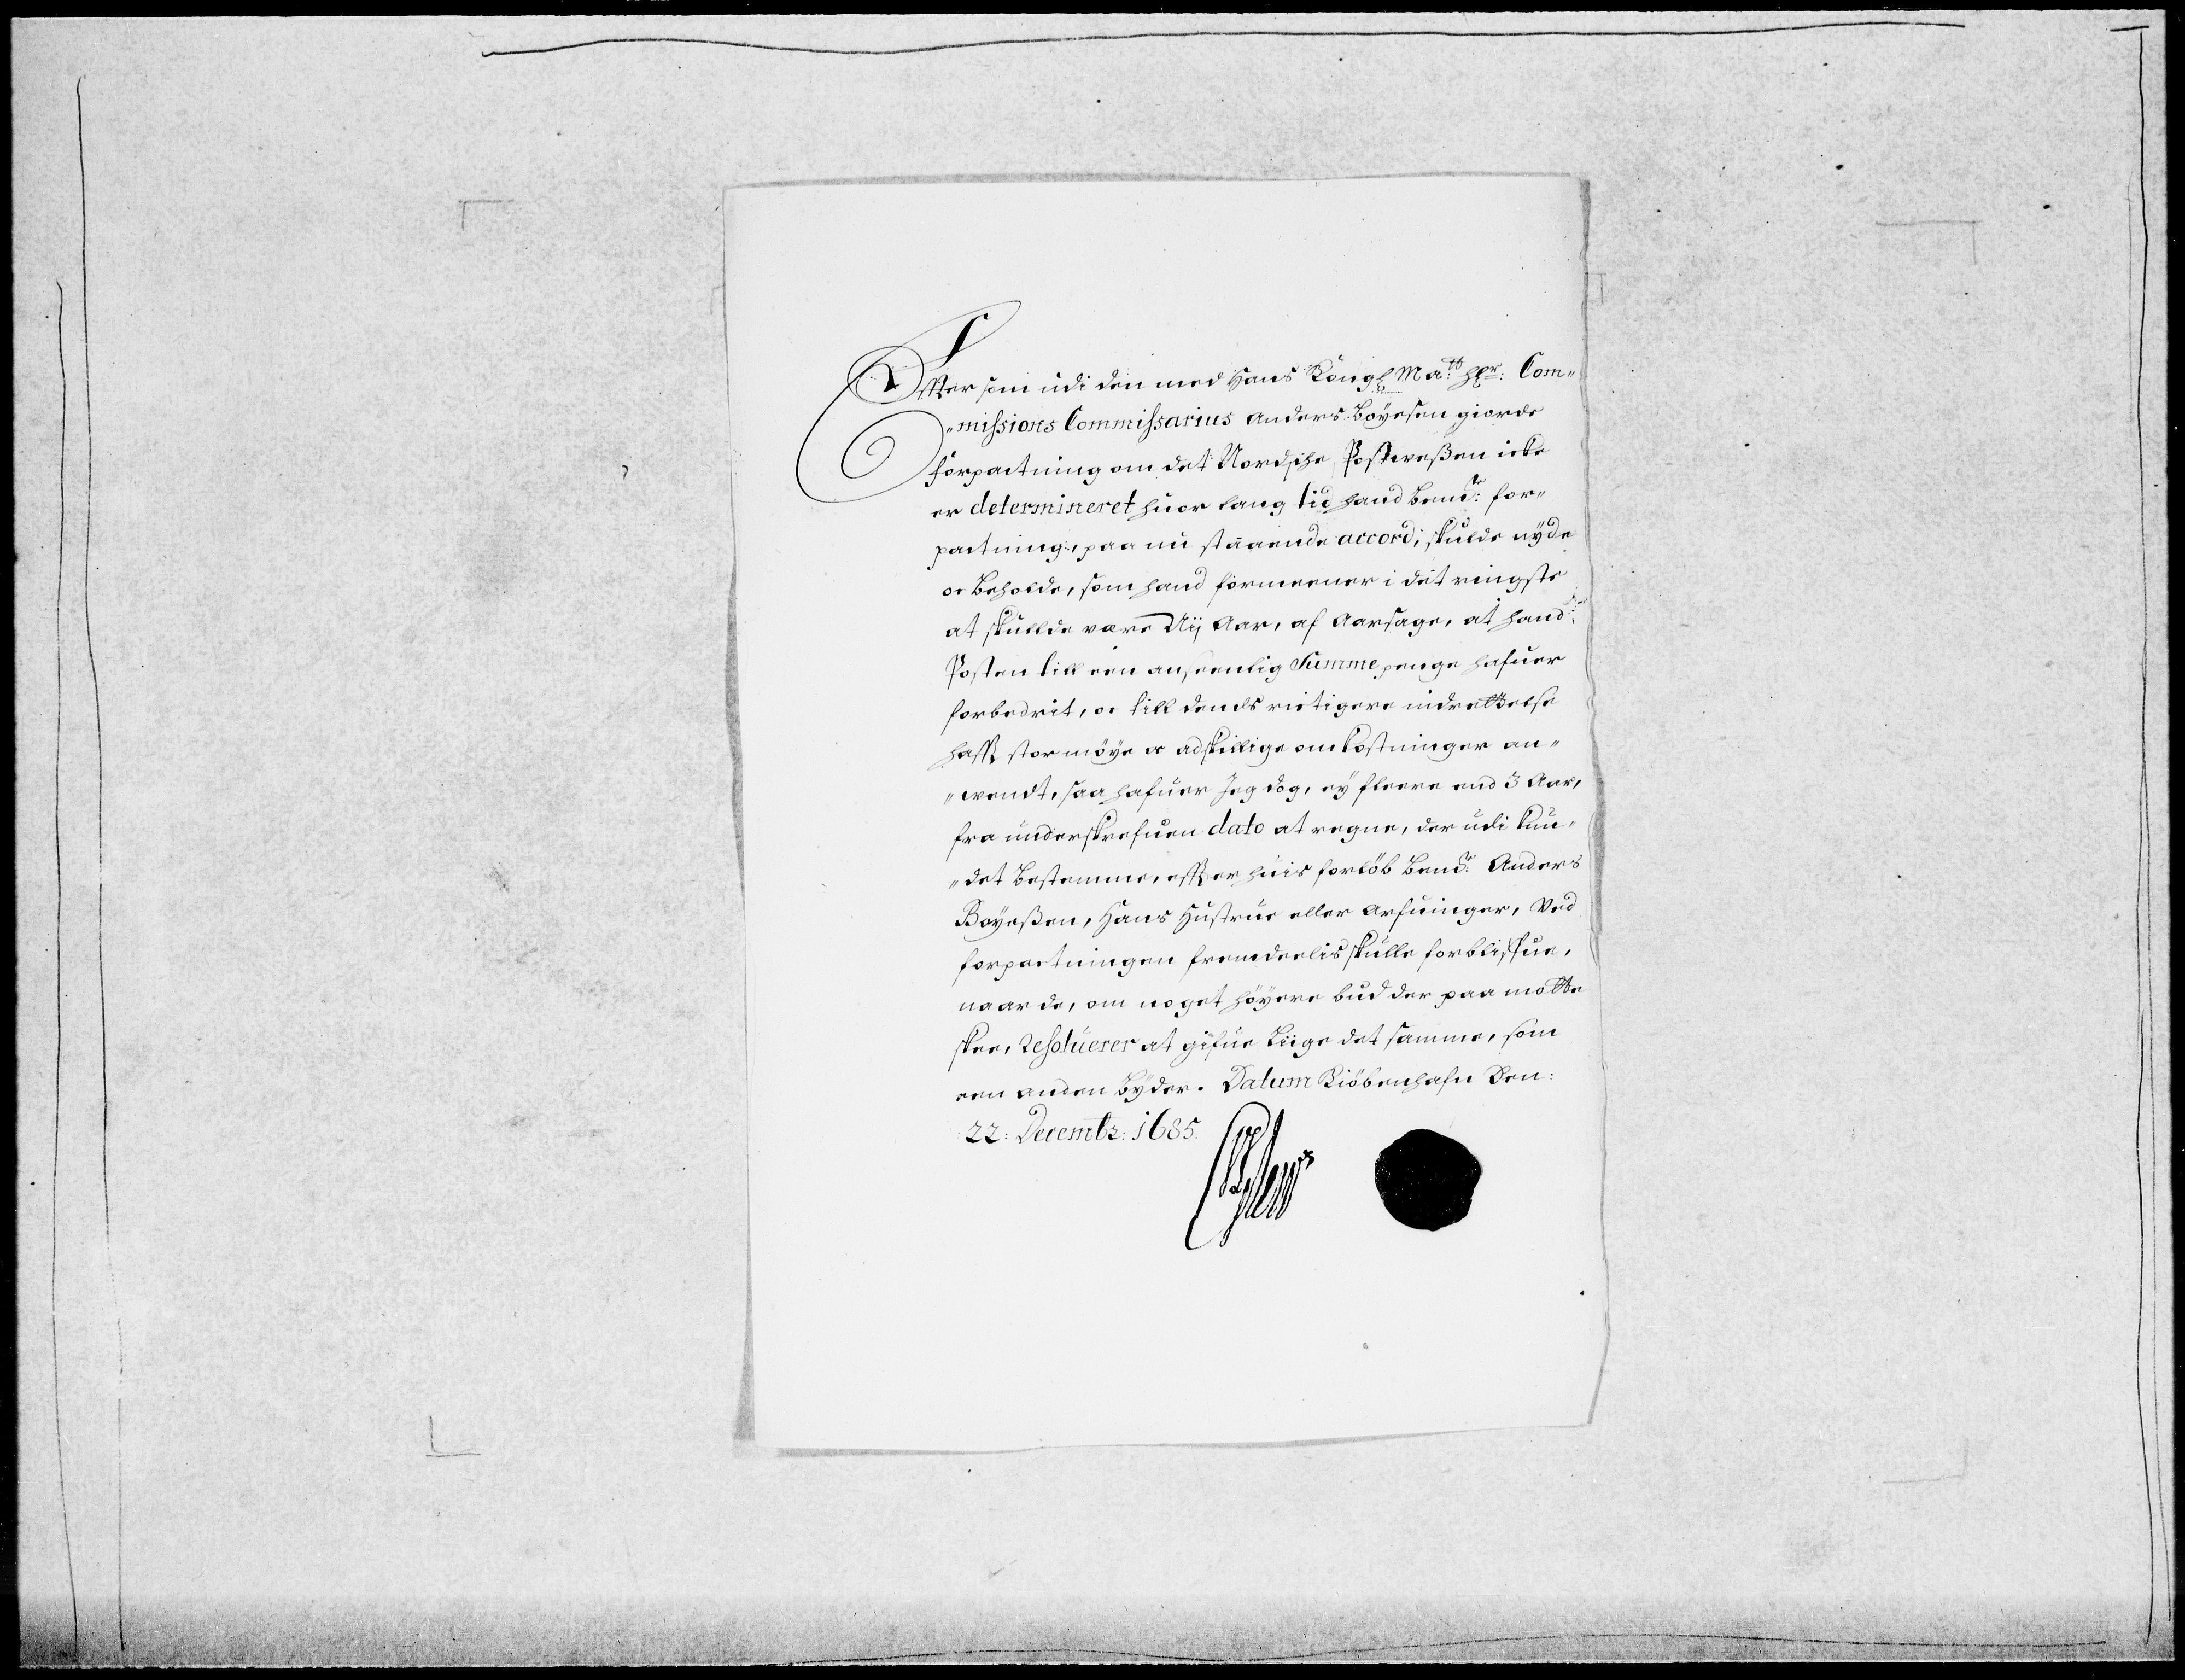 Effter som udi den med Hans Kongl Ma:tt Hr: Com„
„missions Commissarius Anders Böyesen giorde
forpactning om det Nordsche Postwæßen icke
er determineret huor lang tid hand bem:te for„
pactning, paa nu staaende accord, skulde nyde
oc beholde, som hand formeener i det ringste
at skullde være Aar, af Aarsage, at hand
Posten till een anseenlig Summe penge hafuer
forbedrit, oc till dends rictigere indrettelse
haffr stor möye oc adskillige omkostninger an„
„wendt, saa hafuer Jeg dog, ey fleere end 3 Aar,
fra underskrefuen dato at regne, der udi kun„
„det bestemme, effter huis forlöb bem:te Anders
Böyeßen, Hans Hustrue eller Arfuinger, Ved
forpactningen fremdeelis skulle forblifue,
naar de, om noget höyere bud der paa motte
skee, Resoluerer at gifue liige det samme, som
een anden byder. Datum Kiöbenhafn Den:
22: Decembr: 1685.